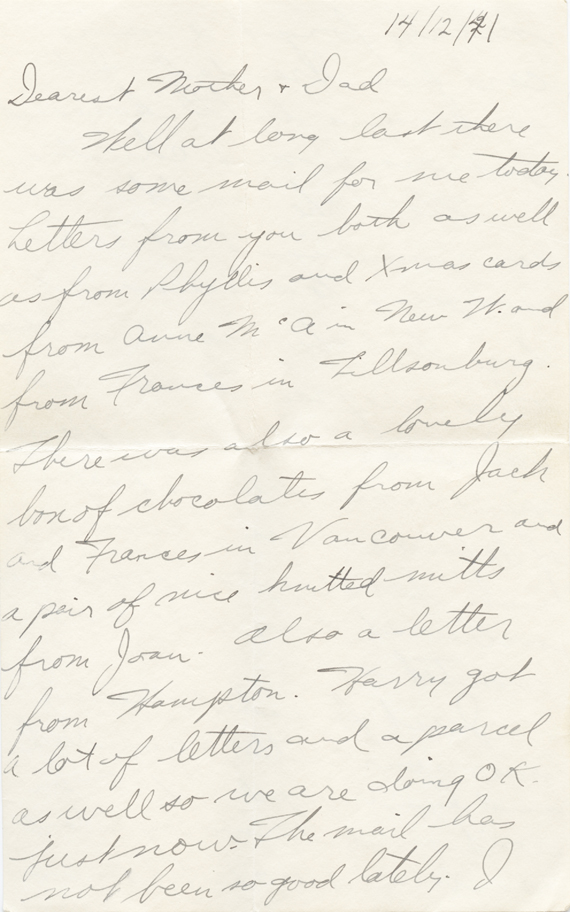 14/12/41
Dearest Mother + Dad
Well at long last there
was some mail for me today.
Letters from you both as well
as from Phyllis and Xmas cards
from Anne McA in New W. and
from Frances in Tillsonburg.
There was also a lovely
box of chocolates from Jack
and Frances in Vancouver and
a pair of nice knitted mitts
from Joan. Also a letter
from Hampton. Harry got
a lot of letters and a parcel
as well so we are doing OK.
just now. The mail has
not been so good lately. I